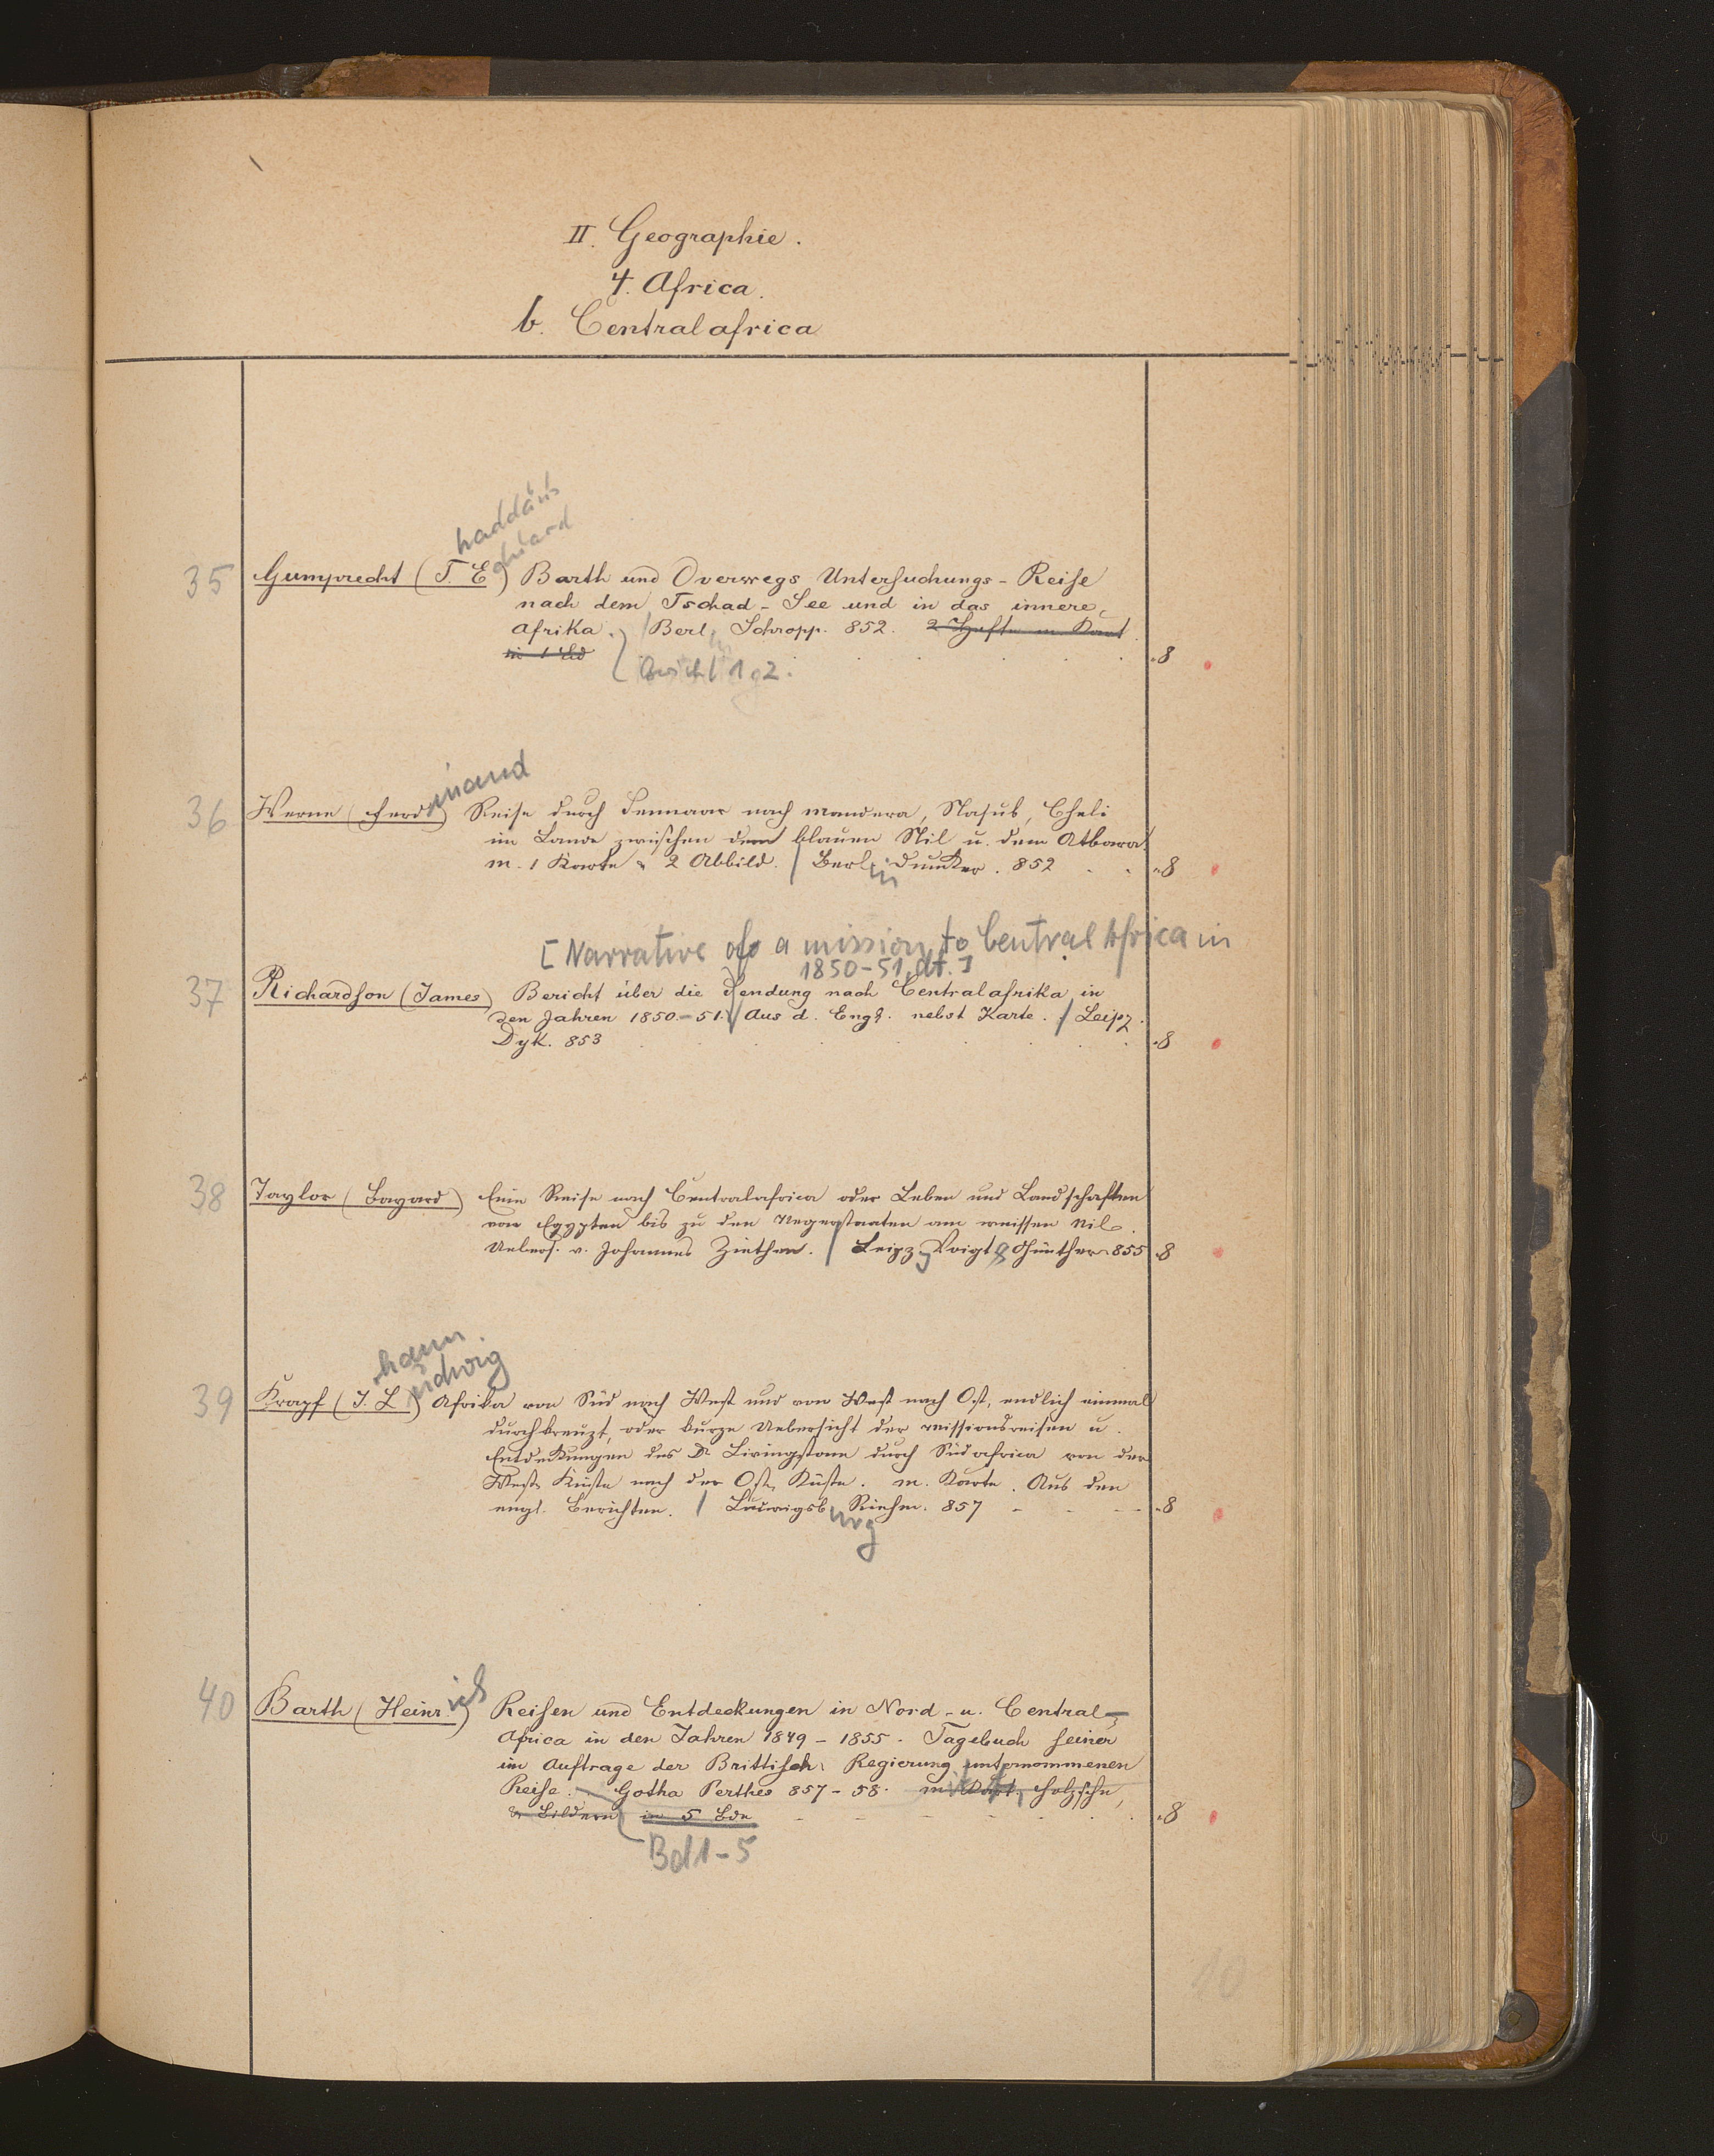 II. Geographie.
4. Africa.
b. Centralafrica
haddäus
duard
35 Gumprecht (T. E.) Barth und Overwegs Untersuchungs-Reise
nach dem Tschad-See und in das innere
Afrika. / Berl. Schropp. 852. 2 Hefte m Kart
in 1 Bd
1 2. 8
inand
36 Werne (Ferd.) Reise durch Sennaar nach Mandera, Nasub, Cheli
im Lande zwischen dem blauen Nil u. dem Atbara
m. 1 Karte & 2 Abbild. / Berlin Dunker. 852 8
[Narrative of a mission to Central Africa in
1850-51, dt.]
37 Richardson (James) Bericht über die Sendung nach Centralafrika in
den Jahren 1850-51. / Aus d. Engl. nebst Karte. / Leipz.
Dyk. 853 8
38 Taylor (Bayard) Eine Reise nach Centralafrica oder Leben und Landschaften
von Egypten bis zu den Negerstaaten am weissen Nil.
Uebers. v. Johannes Ziethen. / Leipzg Voigt & Günther 855 8
hann
udwig
39 Krapf (J. L.) Afrika von Süd nach West und von West nach Ost, endlich einmal
durchkreuzt, oder kurze Uebersicht der Missionsreisen u.
Entdeckungen des Dr Livingstone durch Südafrica von der
West Küste nach der Ost Küste. m. Karte. Aus den
engl. Berichten. / Ludwigsburg Riehm. 857 8
40 Barth (Heinrich) Reisen und Entdeckungen in Nord- u. Central-
Africa in den Jahren 1849-1855. Tagebuch seiner
im Auftrage der Brittisch. Regierung unternommenen
Reise. Gotha Perthes 857-58. m Kart, Holzschn,
& Bildern in 5 Bde 8
Bd 1-5
10